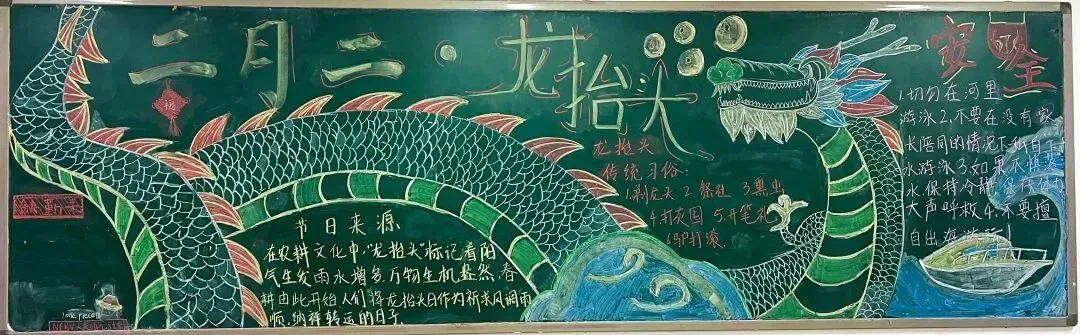 二月二·龙抬头
福
节日来源
在农耕文化中,“龙抬头”标记着阳
气生发雨水增多万物生机盎然,春
耕由此开始人们将龙抬头日作为祈求风调雨
顺、纳祥转运的日子
龙抬头
传统习俗:
1.剃龙头 2.祭社 3.熏虫
4.打灰囤 5.开笔礼
安全
1.切勿在河里
游泳2.不要在没有家
长陪同的情况下
水游泳3.如果不慎
水保持冷静
大声呼救4.不要擅
自出
one piece